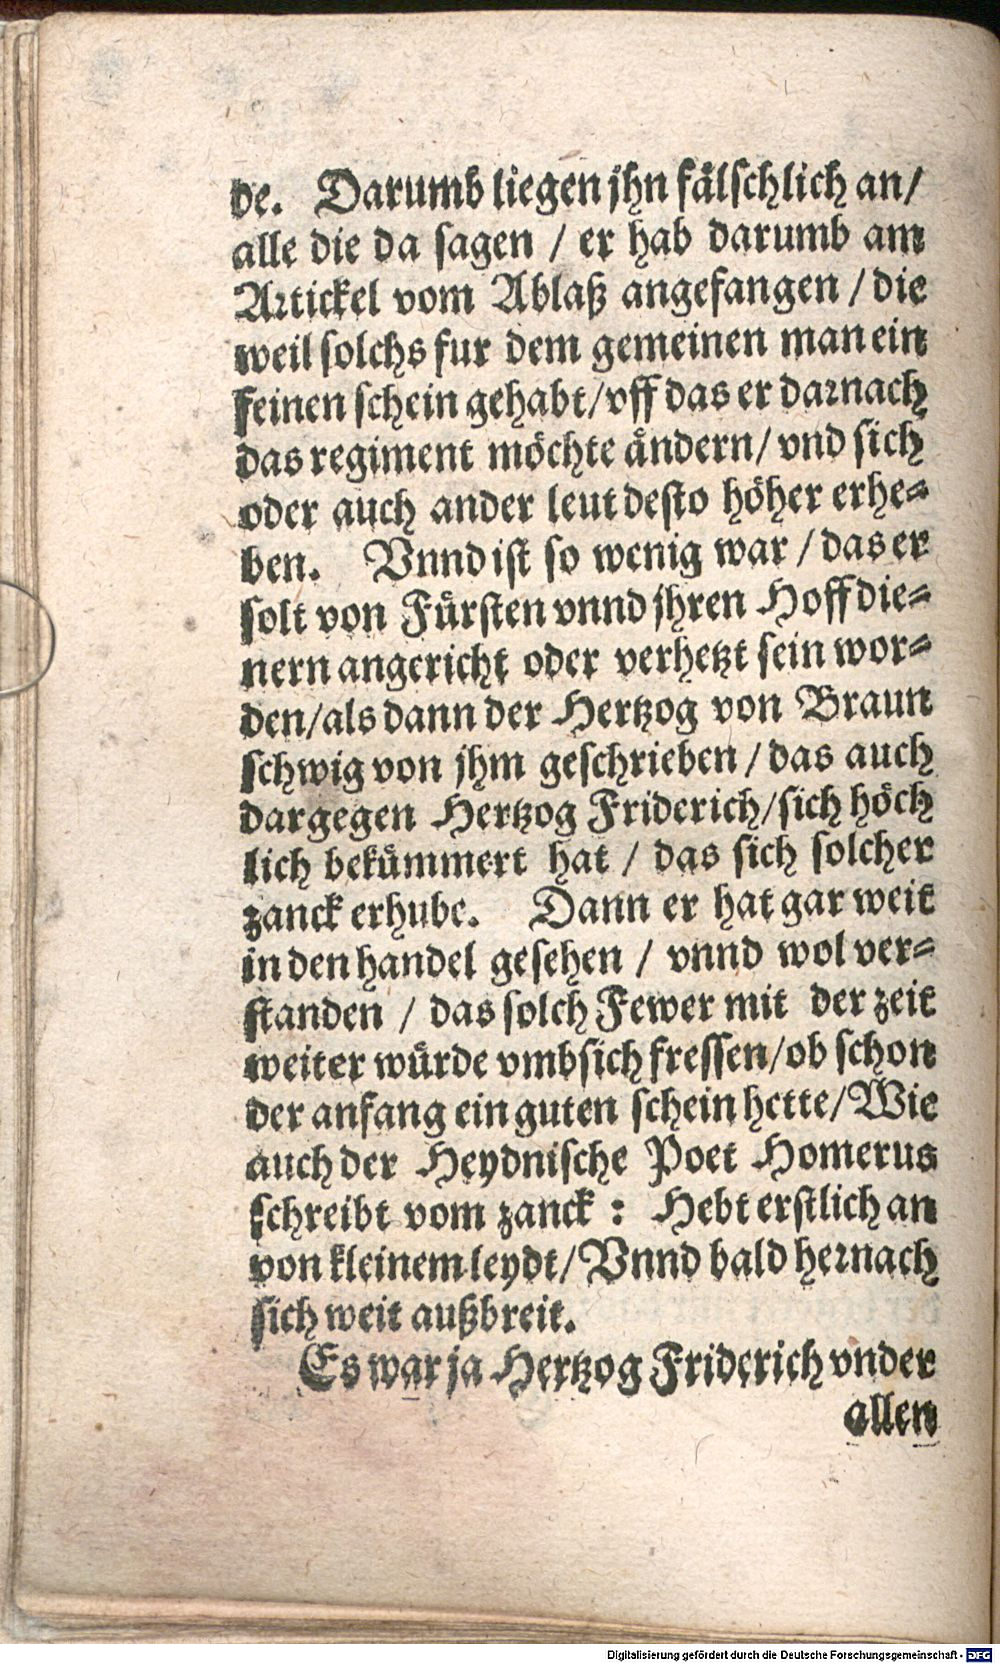 de. Darumb liegen jhn fälschlich an/
alle die da sagen / er hab darumb am
Artickel vom Ablaß angefangen / die
weil solchs fur dem gemeinen man ein
feinen schein gehabt/vff das er darnach
das regiment möchte ändern/ vnd sich
oder auch ander leut desto höher erhe-
ben. Vnnd ist so wenig war / das er
solt von Fürsten vnnd jhren Hoffdie-
nern angericht oder verhetzt sein wor-
den/als dann der Hertzog von Braun
schwig von jhm geschrieben / das auch
dargegen Hertzog Friderich/sich höch
lich bekümmert hat / das sich solcher
zanck erhube. Dann er hat gar weit
in den handel gesehen / vnnd wol ver-
standen / das solch Fewer mit der zeit
weiter würde vmbsich fressen/ob schon
der anfang ein guten schein hette/Wie
auch der Heydnische Poet Homerus
schreibt vom zanck : Hebt erstlich an
von kleinem leydt/Vnnd bald hernach
sich weit außbreit.
Es war ja Hertzog Friderich vnder
allen
Digitalisierung gefördert durch die Deutsche Forschungsgemeinschaft - DFG